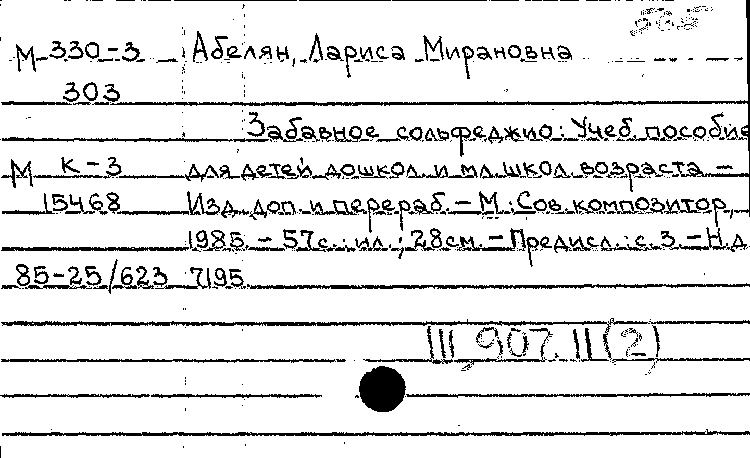 565
М 330-3 Абелян, Лариса Мирановна
303
Забавное сольфеджио: Учеб. пособие
М К-3 для детей дошкол. и мл. школ. возраста –
15468 Изд. доп. и перераб. – М.: Сов. композитор,
1985. – 57с.: ил.; 28см. – Предисл.: с. 3. – Н.д.
85-25/623 7195
III, 907. II (2)